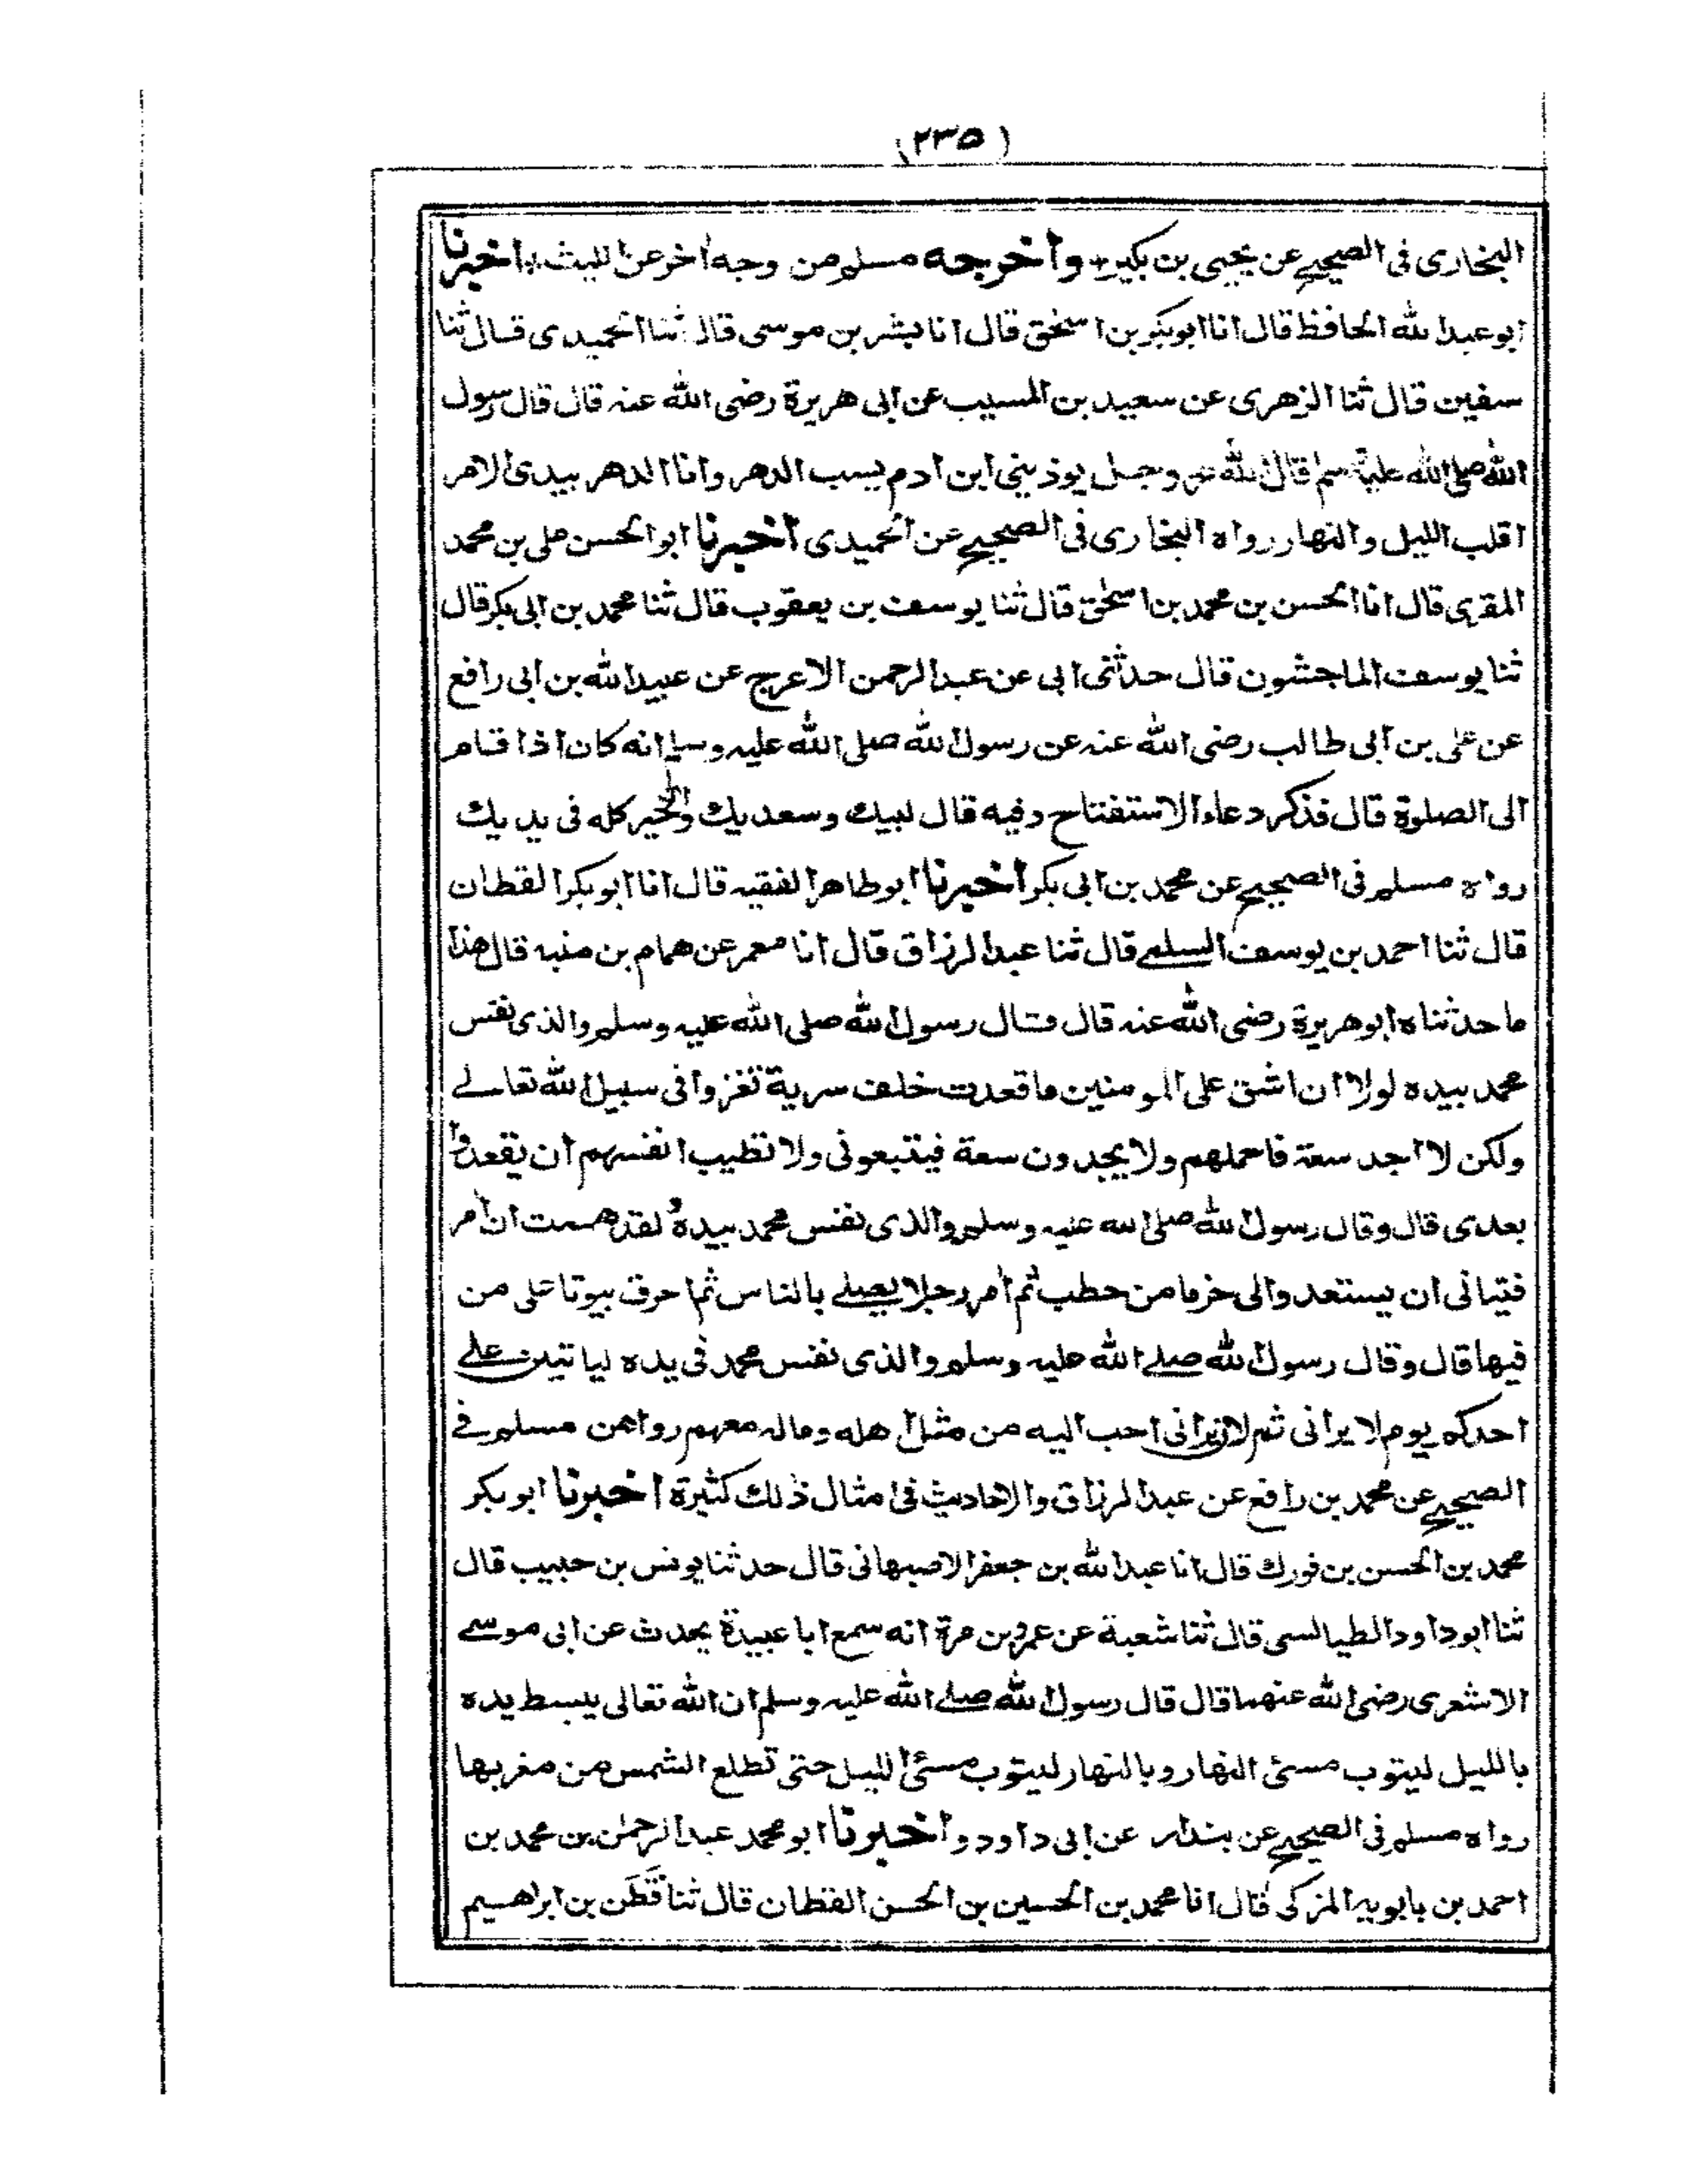 (٢٣٥)
البخارى فى الصحيح عن يحيى بن بكير* وأخرجه مسلم من وجه أخر عن الليث* اخبرنا
ابو عبد الله الحافظ قال انا ابو بكر بن اسحق قال انا بشر بن موسى قال ثنا الحميدى قال ثنا
سفين قال ثنا الزهرى عن سعيد بن المسيب عن ابى هريرة رضى الله عنه قال قال رسول
الله صلى الله عليه وسلم قال الله عز وجل يوذينى ابن ادم يسب الدهر وانا الدهر بيدى الامر
اقلب الليل والنهار رواه البخارى فى الصحيح عن الحميدى أخبرنا ابو الحسن على بن محمد
المقرى قال انا الحسن بن محمد بن اسحق قال ثنا يوسف بن يعقوب قال ثنا محمد بن ابى بكر قال
ثنا يوسف الماجشون قال حدثنى ابى عن عبد الرحمن الاعرج عن عبيد الله بن ابى رافع
عن على بن ابى طالب رضى الله عنه عن رسول الله صلى الله عليه وسلم انه كان اذا قام
الى الصلوة قال فذكر دعاء الاستفتاح وفيه قال لبيك وسعديك والخير كله فى يديك
رواه مسلم فى الصحيح عن محمد بن ابى بكر أخبرنا ابو طاهر الفقيه قال انا ابو بكر القطان
قال ثنا احمد بن يوسف السلمى قال ثنا عبد الرزاق قال انا معمر عن همام بن منبه قال هذا
ما حدثناه ابو هريرة رضى الله عنه قال قال رسول الله صلى الله عليه وسلم والذى نفس
محمد بيده لولا ان اشق على المومنين ما قعدت خلف سرية تغزوا فى سبيل الله تعالى
ولكن لا اجد سعة فاحملهم ولا يجدون سعة فيتبعونى ولا تطيب انفسهم ان يقعدوا
بعدى قال وقال رسول الله صلى الله عليه وسلم والذى نفس محمد بيده لقد هممت ان أمر
فتيانى ان يستعدوا لى حزما من حطب ثم أمر رجلا يصلى بالناس ثم احرق بيوتا على من
فيها قال وقال رسول الله صلى الله عليه وسلم والذى نفس محمد فى يده لياتين على
احدكم يوم لا يرانى ثم لان يرانى احب اليه من مثل اهله وماله معهم رواهن مسلم فى
الصحيح عن محمد بن رافع عن عبد الرزاق والاحاديث فى امثال ذلك كثيرة اخبرنا ابو بكر
محمد بن الحسن بن فورك قال انا عبد الله بن جعفر الاصبهانى قال حدثنا يونس بن حبيب قال
ثنا ابو داود الطيالسى قال ثنا شعبة عن عمرو بن مرة انه سمع ابا عبيدة يحدث عن ابى موسى
الاشعرى رضى الله عنهما قال قال رسول الله صلى الله عليه وسلم ان الله تعالى يبسط يده
بالليل ليتوب مسئ النهار وبالنهار ليتوب مسئ الليل حتى تطلع الشمس من مغربها
رواه مسلم فى الصحيح عن بندار عن ابى داود وأخبرنا ابو محمد عبد الرحمن بن محمد بن
احمد بن بابويه المزكى قال انا محمد بن الحسين بن الحسن القطان قال ثنا قَطَن بن ابراهيم